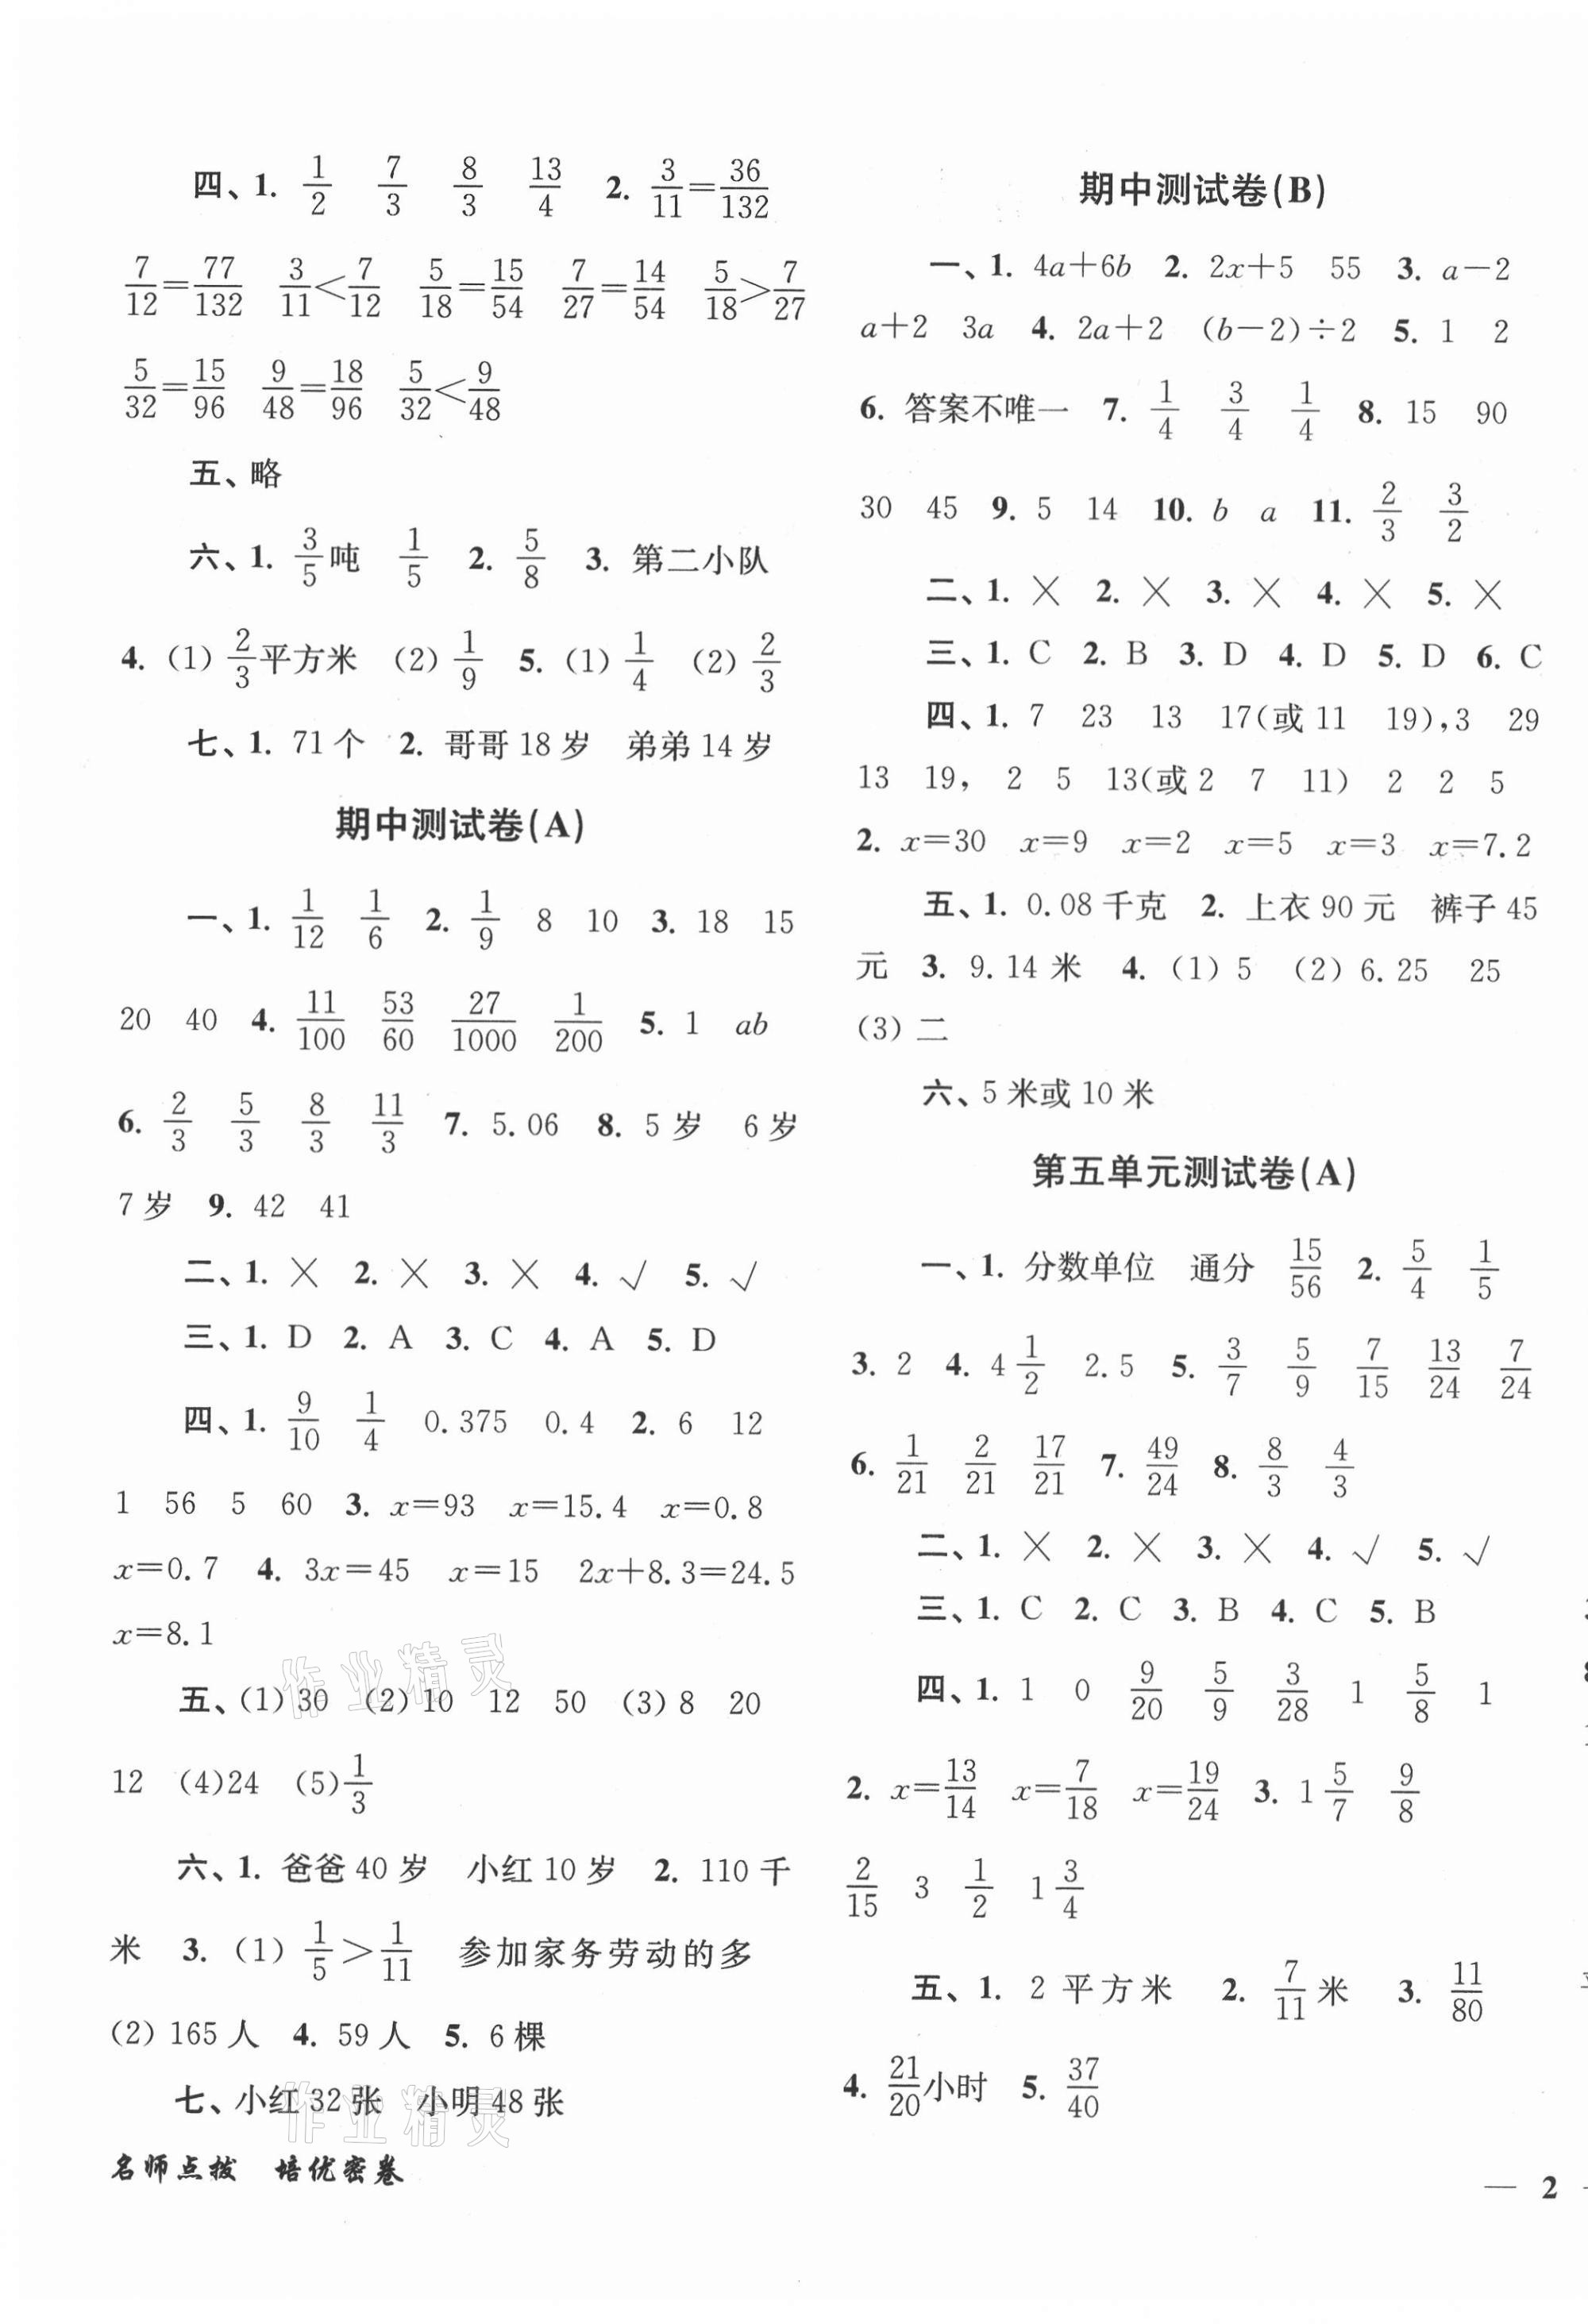 四、1. 1/2 7/3 8/3 13/4 2. 3/11=36/132
7/12=77/132 3/11<7/12 5/18=15/54 7/27=14/54 5/18>7/27
5/32=15/96 9/48=18/96 5/32<9/48
五、略
六、1. 3/5吨 1/5 2. 5/8 3. 第二小队
4. (1) 2/3平方米 (2) 1/9 5. (1) 1/4 (2) 2/3
七、1. 71个 2. 哥哥18岁 弟弟14岁
期中测试卷(A)
一、1. 1/12 1/6 2. 1/9 8 10 3. 18 15
20 40 4. 11/100 53/60 27/1000 1/200 5. 1 ab
6. 2/3 5/3 8/3 11/3 7. 5.06 8. 5岁 6岁
7岁 9. 42 41
二、1. × 2. × 3. × 4. √ 5. √
三、1. D 2. A 3. C 4. A 5. D
四、1. 9/10 1/4 0.375 0.4 2. 6 12
1 56 5 60 3. x=93 x=15.4 x=0.8
x=0.7 4. 3x=45 x=15 2x+8.3=24.5
x=8.1
五、(1)30 (2)10 12 50 (3)8 20
12 (4)24 (5)1/3
六、1. 爸爸40岁 小红10岁 2. 110千
米 3. (1) 1/5>1/11 参加家务劳动的多
(2) 165人 4. 59人 5. 6棵
七、小红32张 小明48张
名师点拨 培优密卷
期中测试卷(B)
一、1. 4a+6b 2. 2x+5 55 3. a-2
a+2 3a 4. 2a+2 (b-2)÷2 5. 1 2
6. 答案不唯一 7. 1/4 3/4 1/4 8. 15 90
30 45 9. 5 14 10. b a 11. 2/3 3/2
二、1. × 2. × 3. × 4. × 5. ×
三、1. C 2. B 3. D 4. D 5. D 6. C
四、1. 7 23 13 17(或11 19),3 29
13 19, 2 5 13(或2 7 11) 2 2 5
2. x=30 x=9 x=2 x=5 x=3 x=7.2
五、1. 0.08千克 2. 上衣90元 裤子45
元 3. 9.14米 4. (1) 5 (2) 6.25 25
(3) 二
六、5米或10米
第五单元测试卷(A)
一、1. 分数单位 通分 15/56 2. 5/4 1/5
3. 2 4. 4 1/2 2.5 5. 3/7 5/9 7/15 13/24 7/24
6. 1/21 2/21 17/21 7. 49/24 8. 8/3 4/3
二、1. × 2. × 3. × 4. √ 5. √
三、1. C 2. C 3. B 4. C 5. B
四、1. 1 0 9/20 5/9 3/28 1 5/8 1
2. x=13/14 x=7/18 x=19/24 3. 1 5/7 9/8
2/15 3 1/2 1 3/4
五、1. 2平方米 2. 7/11米 3. 11/80
4. 21/20小时 5. 37/40
— 2
作业精灵
作业精灵